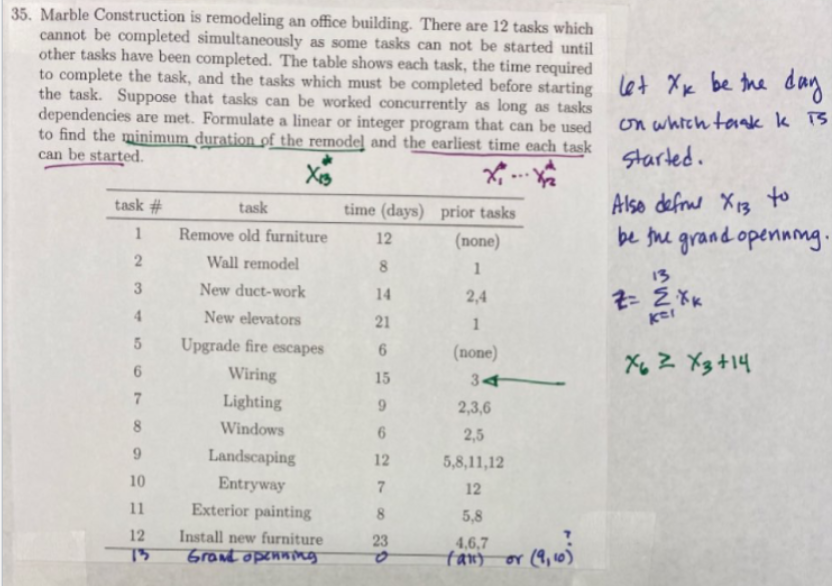 35. Marble Construction is remodeling an office building. There are 12 tasks which
cannot be completed simultaneously as some tasks can not be started until
other tasks have been completed. The table shows each task, the time required
to complete the task, and the tasks which must be completed before starting
the task. Suppose that tasks can be worked concurrently as long as tasks
dependencies are met. Formulate a linear or integer program that can be used
to find the minimum duration of the remodel and the earliest time each task
can be started.
X₁₃* X₁* ... X₁₂*
task # task time (days) prior tasks
1 Remove old furniture 12 (none)
2 Wall remodel 8 1
3 New duct-work 14 2,4
4 New elevators 21 1
5 Upgrade fire escapes 6 (none)
6 Wiring 15 3
7 Lighting 9 2,3,6
8 Windows 6 2,5
9 Landscaping 12 5,8,11,12
10 Entryway 7 12
11 Exterior painting 8 5,8
12 Install new furniture 23 4,6,7
13 Grand openning 0 (all) or (9,10) ?
Let Xₖ be the day
on which task k is
started.
Also define X₁₃ to
be the grand openning.
z = 13 Σ k=1 xₖ
X₆ ≥ X₃ + 14